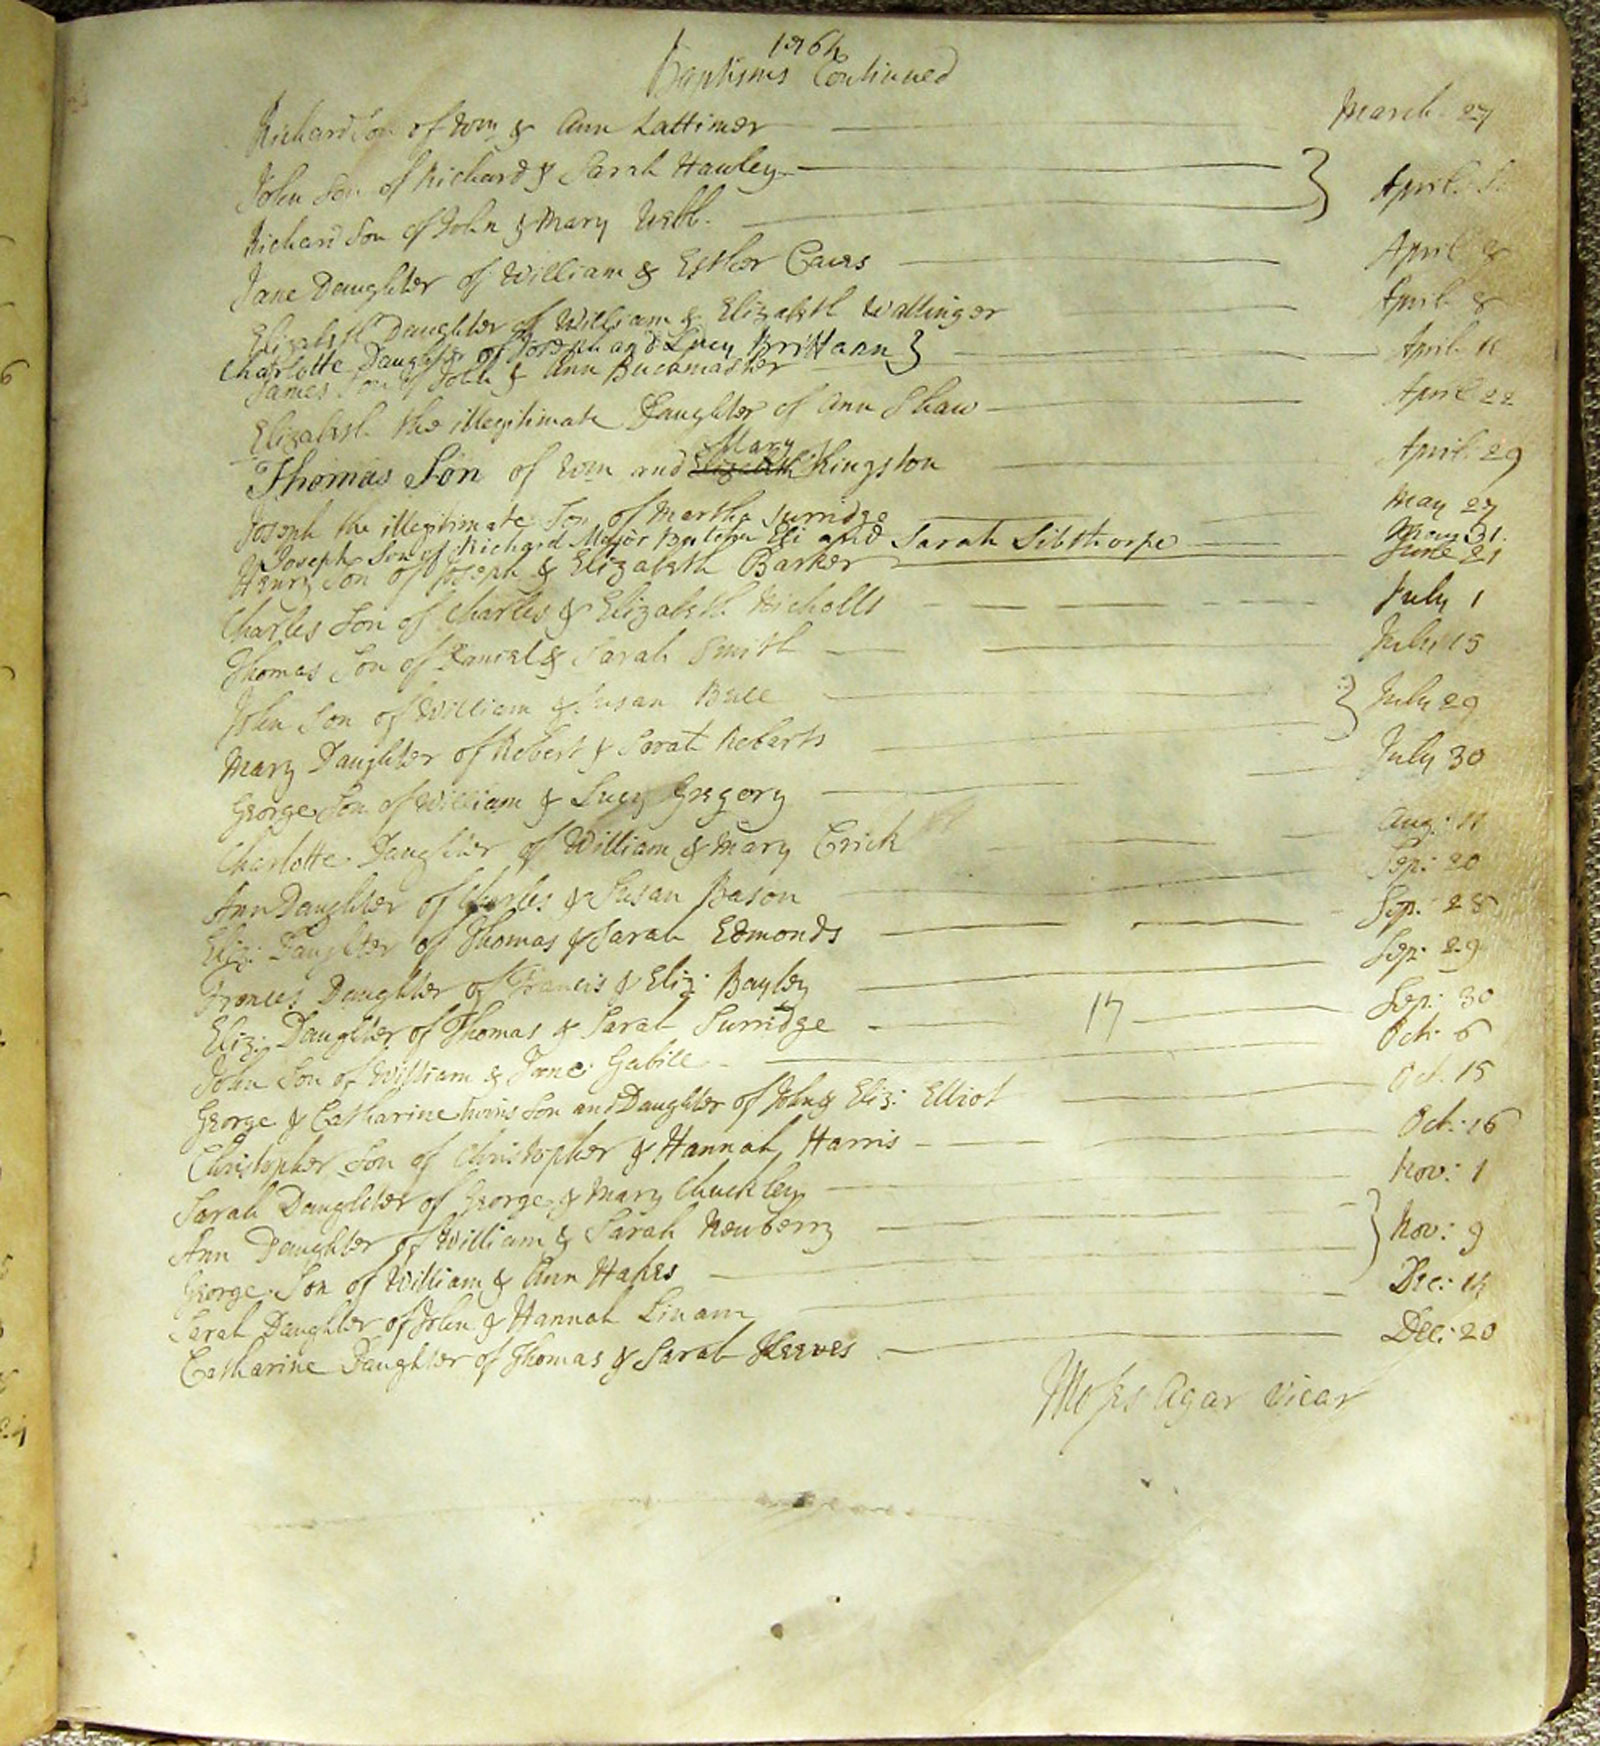 1764
Baptisms Continued
Richard Son of Wm & Ann Lattimer March 27
John Son of Richard & Sarah Hauley
Richard Son of John & Mary Webb. } April
Jane Daughter of William & Esther Caves April 8
Elizabeth Daughter of William & Elizabeth Wallinger April 8
Charlotte Daughter of Joseph and Lucy Brittann }
James Son of John & Ann Buckmaster April 11
Elizabeth the illegitimate Daughter of Ann Shaw April 22
Mary
Thomas Son of Wm and Elizabeth Kingston April 29
Joseph the illegitimate Son of Martha Surridge May 27
Joseph Son of Richard Major Butcher Eli and Sarah Sibthorpe May 31.
Henry Son of Joseph & Elizabeth Barker June 21
Charles Son of Charles & Elizabeth Nicholls July 1
Thomas Son of Daniel & Sarah Smith July 15
John Son of William & Susan Bull } July 29
Mary Daughter of Robert & Sarah Roberts
George Son of William & Lucy Gregory July 30
Charlotte Daughter of William & Mary Crick Aug: 11
Ann Daughter of Charles & Susan Bason Sep: 20
Eliz: Daughter of Thomas & Sarah Edmonds Sep: 28
Frances Daughter of Francis & Eliz: Bayley Sep: 29
Eliz: Daughter of Thomas & Sarah Surridge 17 Sep: 30
John Son of William & Jane Gabill Oct: 6
George & Catharine twins Son and Daughter of John & Eliz: Elliot Oct. 15
Christopher Son of Christopher & Hannah Harris Oct: 16
Sarah Daughter of George & Mary Chuckley Nov: 1
Ann Daughter of William & Sarah Newberry
George Son of William & Ann Hakes } Nov: 9
Sarah Daughter of John & Hannah Linam Dec: 14
Catharine Daughter of Thomas & Sarah Reeves Dec: 20
Moses Agar Vicar